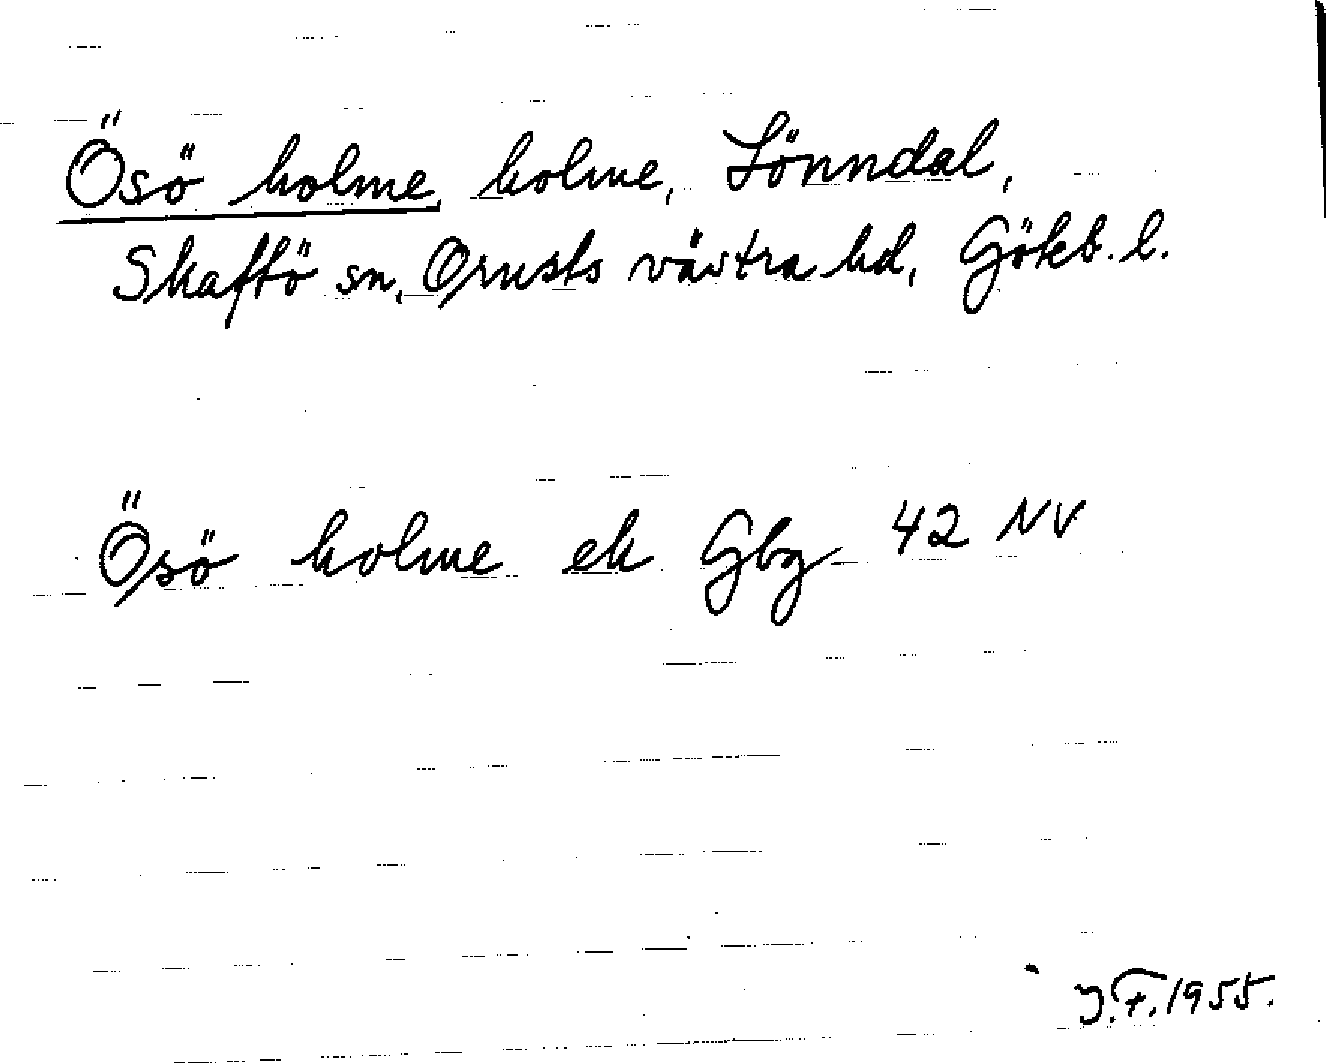 Ösö holme, holme, Lönndal,
Skaftö sn, Orusts västra hd, Göteb. l.
Ösö holme ek Gbg 42 NV
J.F. 1955.